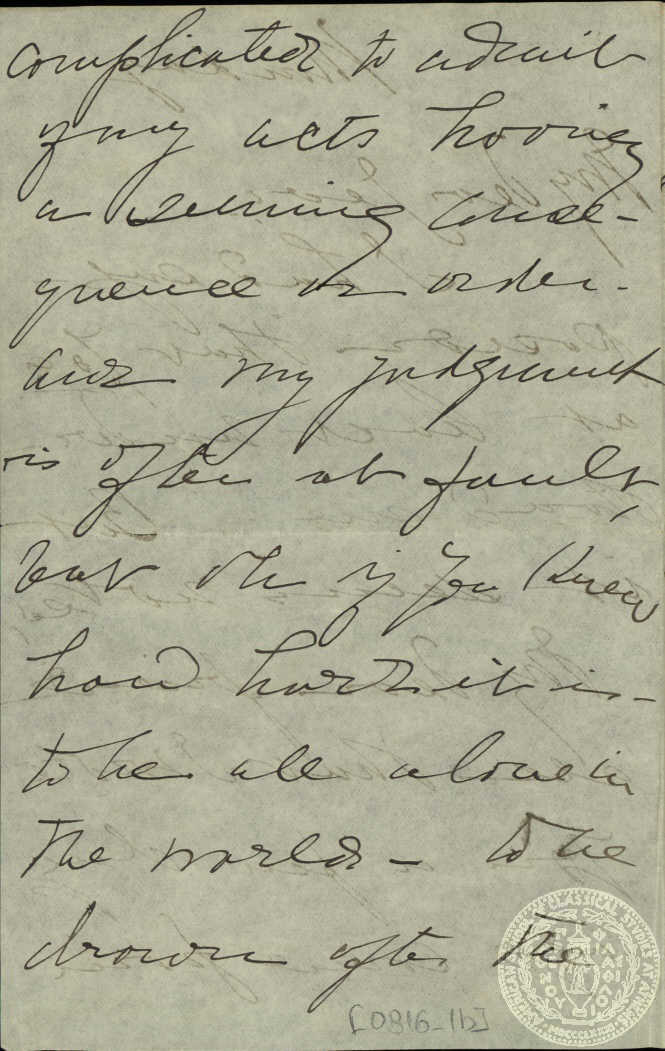 complicated to admit
of my acts having
a seeming conse-
quence or order.
and my judgment
is often at fault,
but oh if you knew
how hard it is –
to be all alone in
the world – to be
drawn after the
[0816_1b]